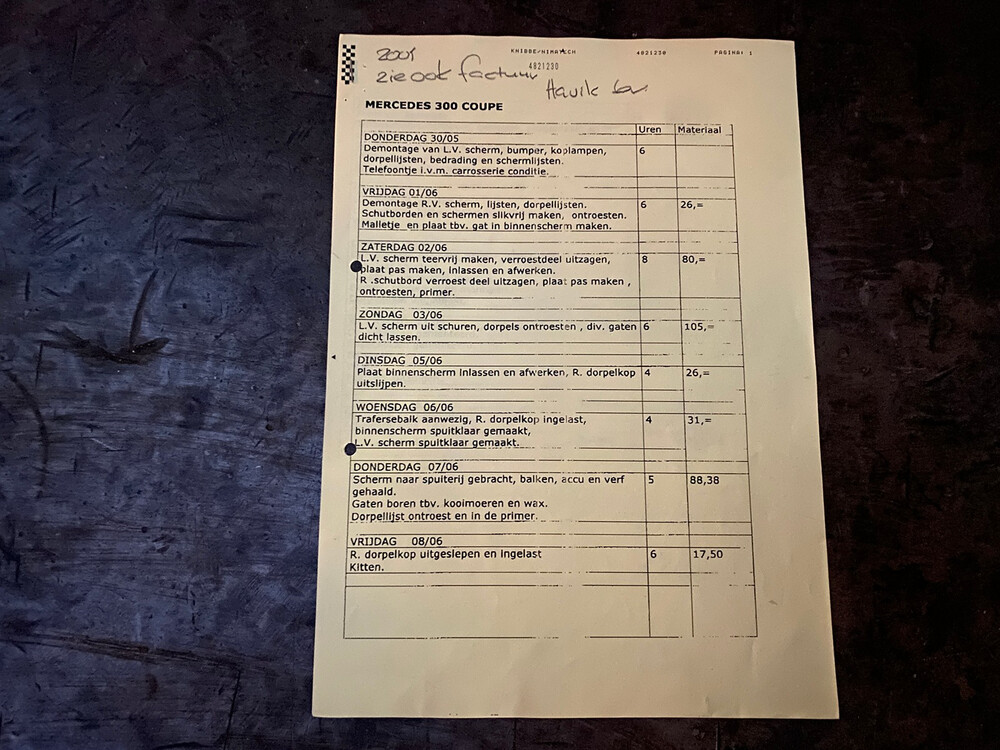 KNIBBE/NIMATECH 4821230 PAGINA: 1
2001 4821230
zie ook factuur
Havik
MERCEDES 300 COUPE
Uren Materiaal
DONDERDAG 30/05
Demontage van L.V. scherm, bumper, koplampen, 6
dorpellijsten, bedrading en schermlijsten.
Telefoontje i.v.m. carrosserie conditie.
VRIJDAG 01/06
Demontage R.V. scherm, lijsten, dorpellijsten. 6 26,=
Schutborden en schermen slikvrij maken, ontroesten.
Malletje en plaat tbv. gat in binnenscherm maken.
ZATERDAG 02/06
L.V. scherm teervrij maken, verroestdeel uitzagen, 8 80,=
plaat pas maken, inlassen en afwerken.
R .schutbord verroest deel uitzagen, plaat pas maken ,
ontroesten, primer.
ZONDAG 03/06
L.V. scherm uit schuren, dorpels ontroesten , div. gaten 6 105,=
dicht lassen.
DINSDAG 05/06
Plaat binnenscherm inlassen en afwerken, R. dorpelkop 4 26,=
uitslijpen.
WOENSDAG 06/06
Trafersebalk aanwezig, R. dorpelkop ingelast, 4 31,=
binnenscherm spuitklaar gemaakt,
L.V. scherm spuitklaar gemaakt.
DONDERDAG 07/06
Scherm naar spuiterij gebracht, balken, accu en verf 5 88,38
gehaald.
Gaten boren tbv. kooimoeren en wax.
Dorpellijst ontroest en in de primer.
VRIJDAG 08/06
R. dorpelkop uitgeslepen en ingelast 6 17,50
Kitten.